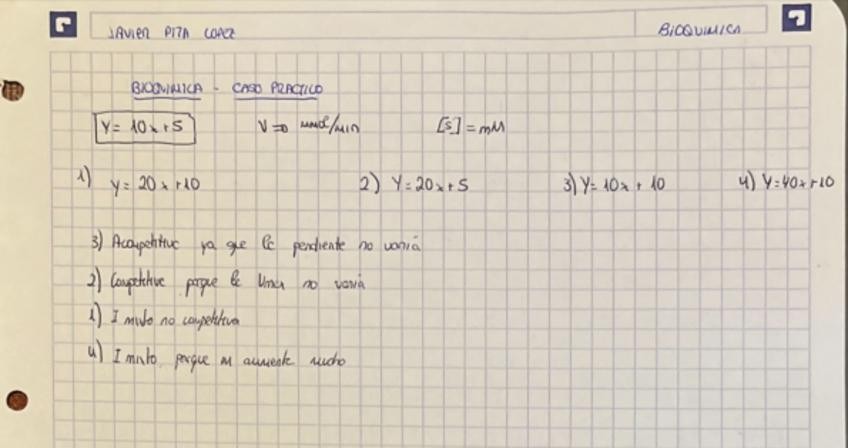 JAVIER PITA LOPEZ
BIOQUIMICA
BIOQUIMICA - CASO PRACTICO
Y= 10x+5 V=> mmol/min [S]=mM
1) y= 20x+10 2) Y=20x+5 3) Y= 10x + 10 4) Y=40x+10
3) Acompetitivo ya que la pendiente no varía
2) Competitivo porque la Vmax no varía
1) I mixto no competitiva
4) I mixto porque m aumenta mucho